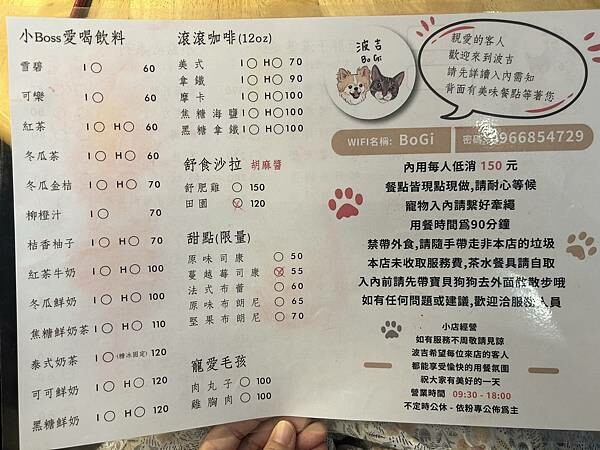 小Boss愛喝飲料
雪碧 I○ 60
可樂 I○ 60
紅茶 I○ H○ 60
冬瓜茶 I○ H○ 60
冬瓜金桔 I○ H○ 70
柳橙汁 I○ 70
桔香柚子 I○ H○ 70
紅茶牛奶 I○ H○ 100
冬瓜鮮奶 I○ H○ 100
焦糖鮮奶茶 I○ H○ 110
泰式奶茶 I○(糖冰固定) 120
可可鮮奶 I○ H○ 120
黑糖鮮奶 I○ H○ 120
滾滾咖啡(12oz)
美式 I○ H○ 70
拿鐵 I○ H○ 90
摩卡 I○ H○ 100
焦糖海鹽 I○ H○ 100
黑糖拿鐵 I○ H○ 100
舒食沙拉 胡麻醬
舒肥雞 ○ 150
田園 ○ 120
甜點(限量)
原味司康 ○ 50
蔓越莓司康 ○ 55
法式布蕾 ○ 60
原味布朗尼 ○ 65
堅果布朗尼 ○ 70
寵愛毛孩
肉丸子 ○ 100
雞胸肉 ○ 100
波吉
Bo Gi
親愛的客人
歡迎來到波吉
請先詳讀入內需知
背面有美味餐點等著您
WIFI名稱: BoGi 密碼 966854729
內用每人低消 150 元
餐點皆現點現做,請耐心等候
寵物入內請繫好牽繩
用餐時間為90分鐘
禁帶外食,請隨手帶走非本店的垃圾
本店未收取服務費,茶水餐具請自取
入內前請先帶寶貝狗狗去外面散散步哦
如有任何問題或建議,歡迎洽服務人員
小店經營
如有服務不周敬請見諒
波吉希望每位來店的客人
都能享受愉快的用餐氛圍
祝大家有美好的一天
營業時間 09:30 - 18:00
不定時公休 - 依粉專公佈爲主